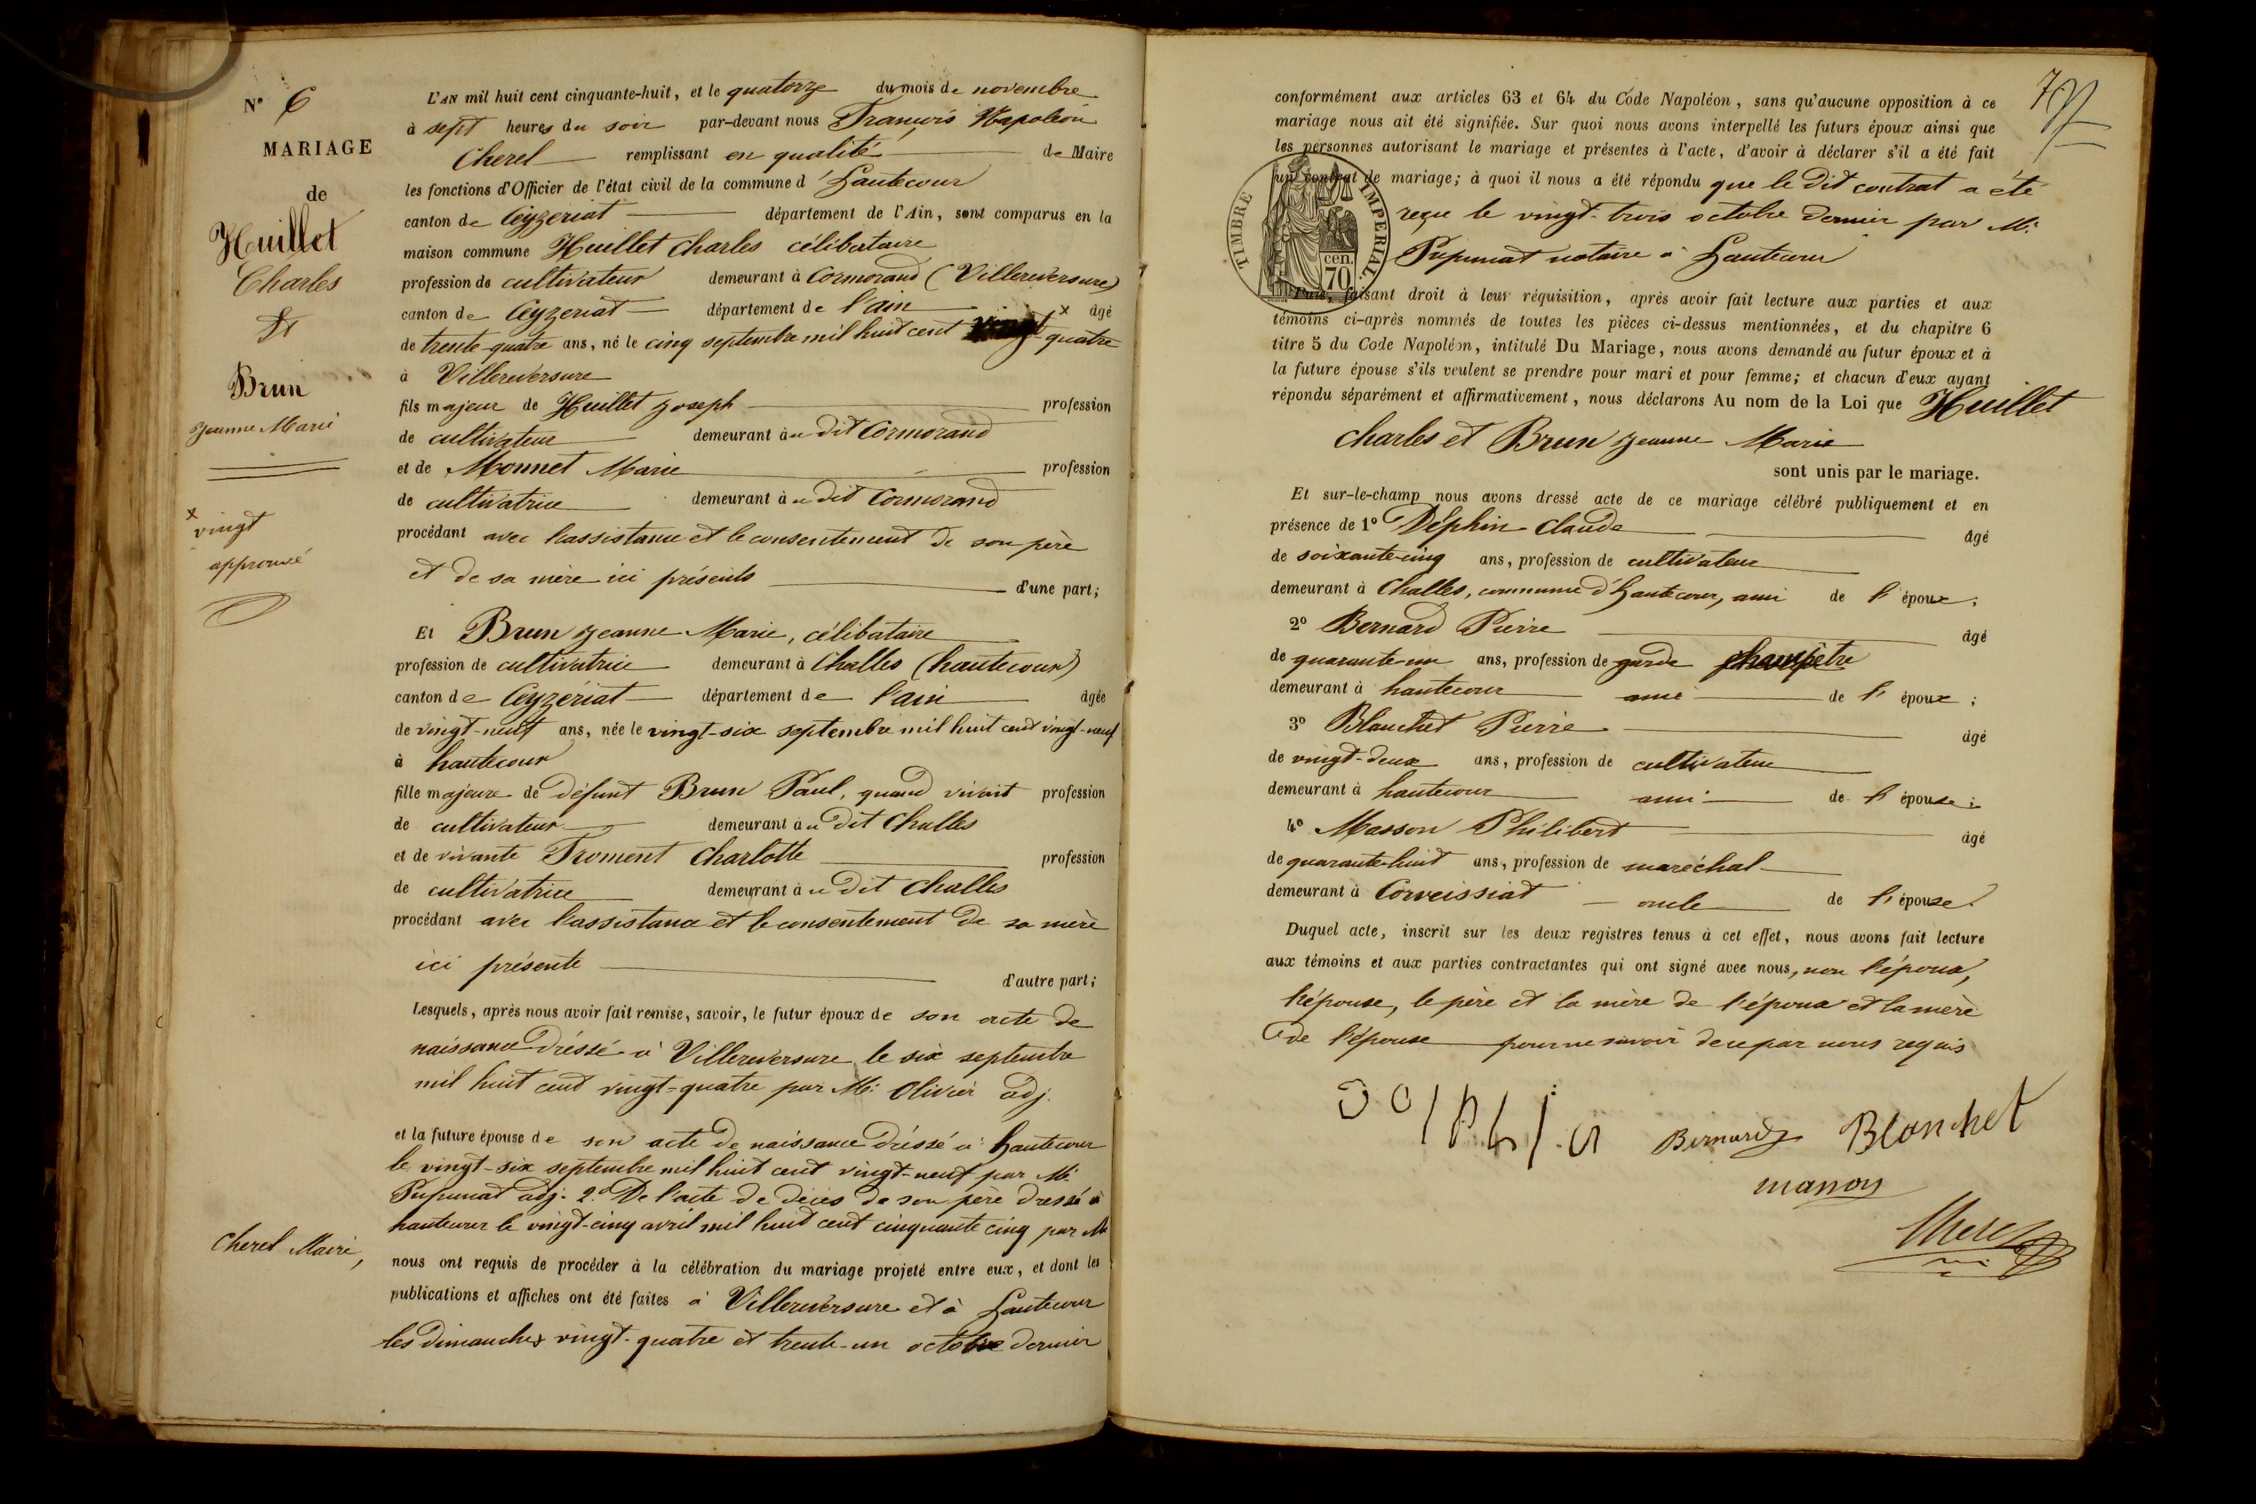 N° 6
MARIAGE
de
Huillet
Charles
Et
Brun
Jeanne Marie
x
vingt
approuvé
Cherel Maire,
L'AN mil huit cent cinquante-huit, et le quatorze du mois de novembre
à sept heures du soir par-devant nous François Napoléon
Cherel remplissant en qualité de Maire
les fonctions d'Officier de l'état civil de la commune d'hautecour
canton de Ceyzériat département de l'Ain, sont comparus en la
maison commune Huillet Charles célibataire
profession de cultivateur demeurant à Cormorand (Villereversure)
canton de Ceyzeriat département de l'ain x âgé
de trente-quatre ans, né le cinq septembre mil huit cent vingt quatre
à Villereversure
fils majeur de Huillet Joseph profession
de cultivateur demeurant à u dit Cormorand
et de Monnet Marie profession
de cultivatrice demeurant à u dit Cormorand
procédant avec l'assistance et le consentement de son père
et de sa mère ici présents d'une part;
Et Brun Jeanne Marie, célibataire
profession de cultivatrice demeurant à Challes (hautecour)
canton de Ceyzériat département de l'ain âgée
de vingt-neuf ans, née le vingt-six septembre mil huit cent vingt-neuf
à hautecour
fille majeure de défunt Brun Paul, quand vivait profession
de cultivateur demeurant à u dit Challes
et de vivante Froment Charlotte profession
de cultivatrice demeurant à u dit Challes
procédant avec l'assistance et le consentement de sa mère
ici présente d'autre part;
Lesquels, après nous avoir fait remise, savoir, le futur époux de son acte de
naissance dréssé à Villereversure le six septembre
mil huit cent vingt-quatre par Mr. Olivier adj.
et la future épouse de son acte de naissance dréssé à hautecour
le vingt-six septembre mil huit cent vingt-neuf par Mr.
Pupunat adj. 2° De l'acte de décès de son père dressé à
hautecour le vingt-cinq avril mil huit cent cinquante cinq par Mr
nous ont requis de procéder à la célébration du mariage projeté entre eux, et dont les
publications et affiches ont été faites à Villereversure et à hautecour
les dimanches vingt-quatre et trente-un octobre dernier
conformément aux articles 63 et 64 du Code Napoléon, sans qu'aucune opposition à ce
mariage nous ait été signifiée. Sur quoi nous avons interpellé les futurs époux ainsi que
les personnes autorisant le mariage et présentes à l'acte, d'avoir à déclarer s'il a été fait
un contrat de mariage; à quoi il nous a été répondu que le dit contrat a été
reçu le vingt-trois octobre dernier par Mr.
Pupunat notaire à hautecour
TIMBRE IMPERIAL.
cen.
70
Puis, faisant droit à leur réquisition, après avoir fait lecture aux parties et aux
témoins ci-après nommés de toutes les pièces ci-dessus mentionnées, et du chapitre 6
titre 5 du Code Napoléon, intitulé Du Mariage, nous avons demandé au futur époux et à
la future épouse s'ils veulent se prendre pour mari et pour femme; et chacun d'eux ayant
répondu séparément et affirmativement, nous déclarons Au nom de la Loi que Huillet
Charles et Brun Jeanne Marie
sont unis par le mariage.
Et sur-le-champ nous avons dressé acte de ce mariage célébré publiquement et en
présence de 1° Déphin Claude âgé
de soixante-cinq ans, profession de cultivateur
demeurant à Challes, commune d'hautecour, ami de l'époux;
2° Bernard Pierre âgé
de quarante-un ans, profession de garde champêtre
demeurant à hautecour ami de l'époux;
3° Blanchet Pierre âgé
de vingt-deux ans, profession de cultivateur
demeurant à hautecour ami de l'épouse;
4° Masson Philibert âgé
de quarante-huit ans, profession de maréchal
demeurant à Corveissiat oncle de l'épouse.
Duquel acte, inscrit sur les deux registres tenus à cet effet, nous avons fait lecture
aux témoins et aux parties contractantes qui ont signé avec nous, non l'époux,
l'épouse, le père et la mère de l'époux et la mère
de l'épouse pour ne savoir de ce par nous requis
Bernard Blanchet
masson
Cherel